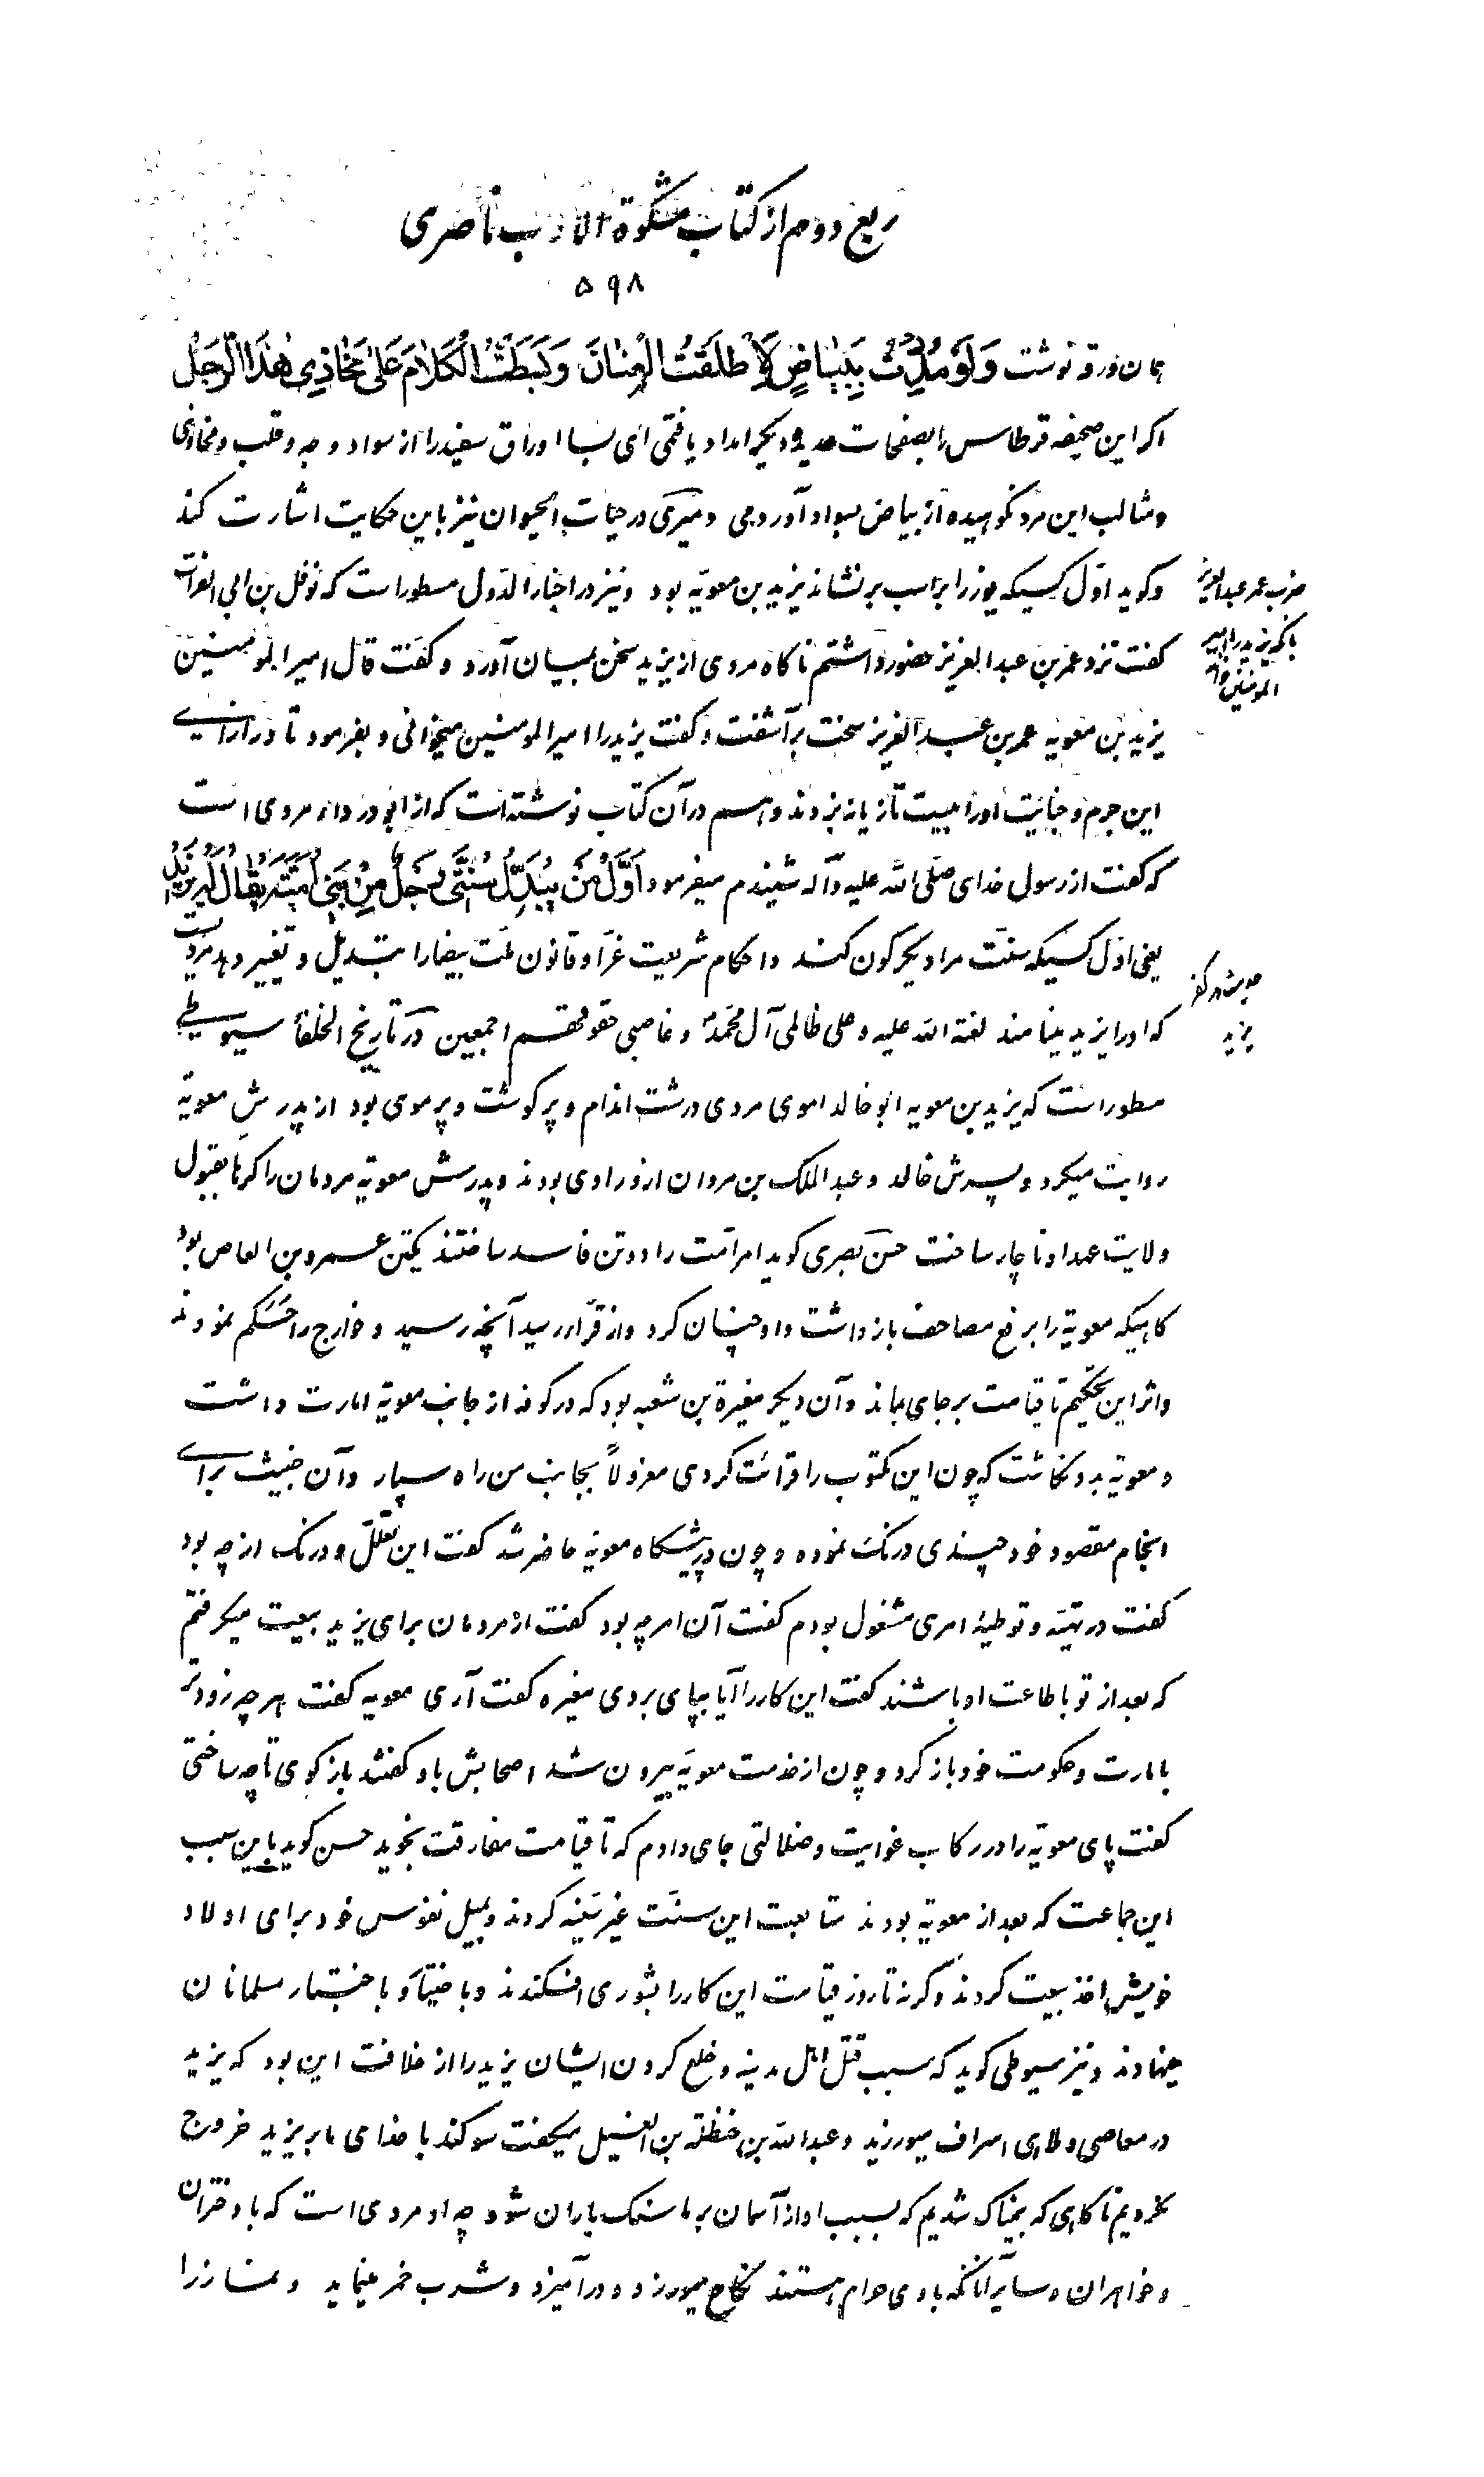 ربع دوم از کتاب مشکوة الادب ناصری
۵۹۸
همان ورق نوشت وَلَوْ مُدِدْتُ بِبَیٰاضٍ لَاَطْلَقْتُ الْعِنٰانَ وَبَسَطْتُ الْکَلٰامَ عَلیٰ مَخٰاذِی هٰذَا الرَّجُلِ
اکر این صحیفه قرطاس را بصفحات عدیده دیکر امداد یافتمی ای بسا اوراق سفید را از سواد وجه و قلب و مخاذی
و مثالب این مرد نکوهیده از بیاض بسواد آوردمی و دمیری در حیات الحیوان نیز باین حکایت اشارت کند
و کوید اوّل کسیکه یوز را بر اسب برنشاند یزید بن معویّه بود و نیز در اخبار الدّول مسطور است که نوفل بن ابی الفرات
کفت نزد عمر بن عبد العزیز حضور داشتم ناکاه مردی از یزید سخن بمیان آورد و کفت قال امیر المؤمنین
یزید بن معویه عمر بن عبد العزیز سخت برآشفت و کفت یزید را امیر المومنین میخوانی و بفرمود تا در ازای
این جرم و جنایت اورا بیست تازیانه بزدند و هم در آن کتاب نوشته است که از ابو درداء مروی است
که کفت از رسول خدای صلّی الله علیه و آله شنیدم میفرمود اَوَّلُ مَنْ یُبَدِّلُ سُنَّتی رَجُلٌ مِنْ بَنی اُمَیَّةَ یُقٰالُ لَهُ یَزیدُ
یعنی اوّل کسیکه سنّت مرا دیکرکون کند و احکام شریعت غرّا و قانون ملّت بیضا را تبدیل و تغییر دهد مردیست
که اورا یزید مینامند لعنة الله علیه و علی ظالمی آل محمّد و غاصبی حقوقهم اجمعین در تاریخ الخلفا سیوطی
مسطور است که یزید بن معویه ابو خالد اموی مردی درشت اندام و پر کوشت و پر موی بود از پدرش معویّه
روایت میکرد و پسرش خالد و عبد الملک بن مروان از و راوی بودند و پدرش معویّه مردمان را کرهاً بقبول
ولایت عهد او ناچار ساخت حسن بصری کوید امر امّت را دو تن فاسد ساختند یکتن عمرو بن العاص بود
کاهیکه معویّه را برفع مصاحف بازداشت و او چنان کرد و از قرّاء رسید آنچه رسید و خوارج را حَکَم نمودند
و اثر این تحکیم تا قیامت بر جای بماند و آن دیکر مغیرة بن شعبه بود که در کوفه از جانب معویّه امارت داشت
و معویّه بدو نکاشت که چون این مکتوب را قرائت کردی معزولاً بجانب من راه سپار و آن خبیث برای
انجام مقصود خود چندی درنک نموده و چون در پیشکاه معویّه حاضر شد کفت این تعلّل و درنک از چه بود
کفت در تهیّه و توطیهٔ امری مشغول بودم کفت آن امر چه بود کفت از مردمان برای یزید بیعت میکرفتم
که بعد از تو باطاعت او باشند کفت این کار را آیا بپای بردی مغیره کفت آری معویه کفت هر چه زودتر
بامارت و حکومت خود بازکرد و چون از خدمت معویّه بیرون شد اصحابش باو کفتند بازکوی تا چه ساختی
کفت پای معویّه را در رکاب غوایت و ضلالتی جای دادم که تا قیامت مفارقت نجوید حسن کوید باین سبب
این جماعت که بعد از معویّه بودند متابعت این سنّت غیر سنیّه کردند و بمیل نفوس خود برای اولاد
خویش اخذ بیعت کردند وکرنه تا روز قیامت این کار را بشوری افکندند و باختیار مسلمانان
مینهادند و نیز سیوطی کوید که سبب قتل اهل مدینه و خلع کردن ایشان یزید را از خلافت این بود که یزید
در معاصی و ملاهی اسراف میورزید و عبد الله بن حنظلة بن الغسیل میکفت سوکند با خدای ما بر یزید خروج
نکردیم تا کاهی که بیمناک شدیم که بسبب او از آسمان بر ما سنک باران شود چه او مردی است که با دختران
و خواهران و سایر آنانکه با وی حرام هستند نکاح میورزد و در آمیزد و شرب خمر مینماید و نماز را
ضرب عمر عبدالعزیز
با که یزید را امیر
المومنین
حدیث در کفر
یزید